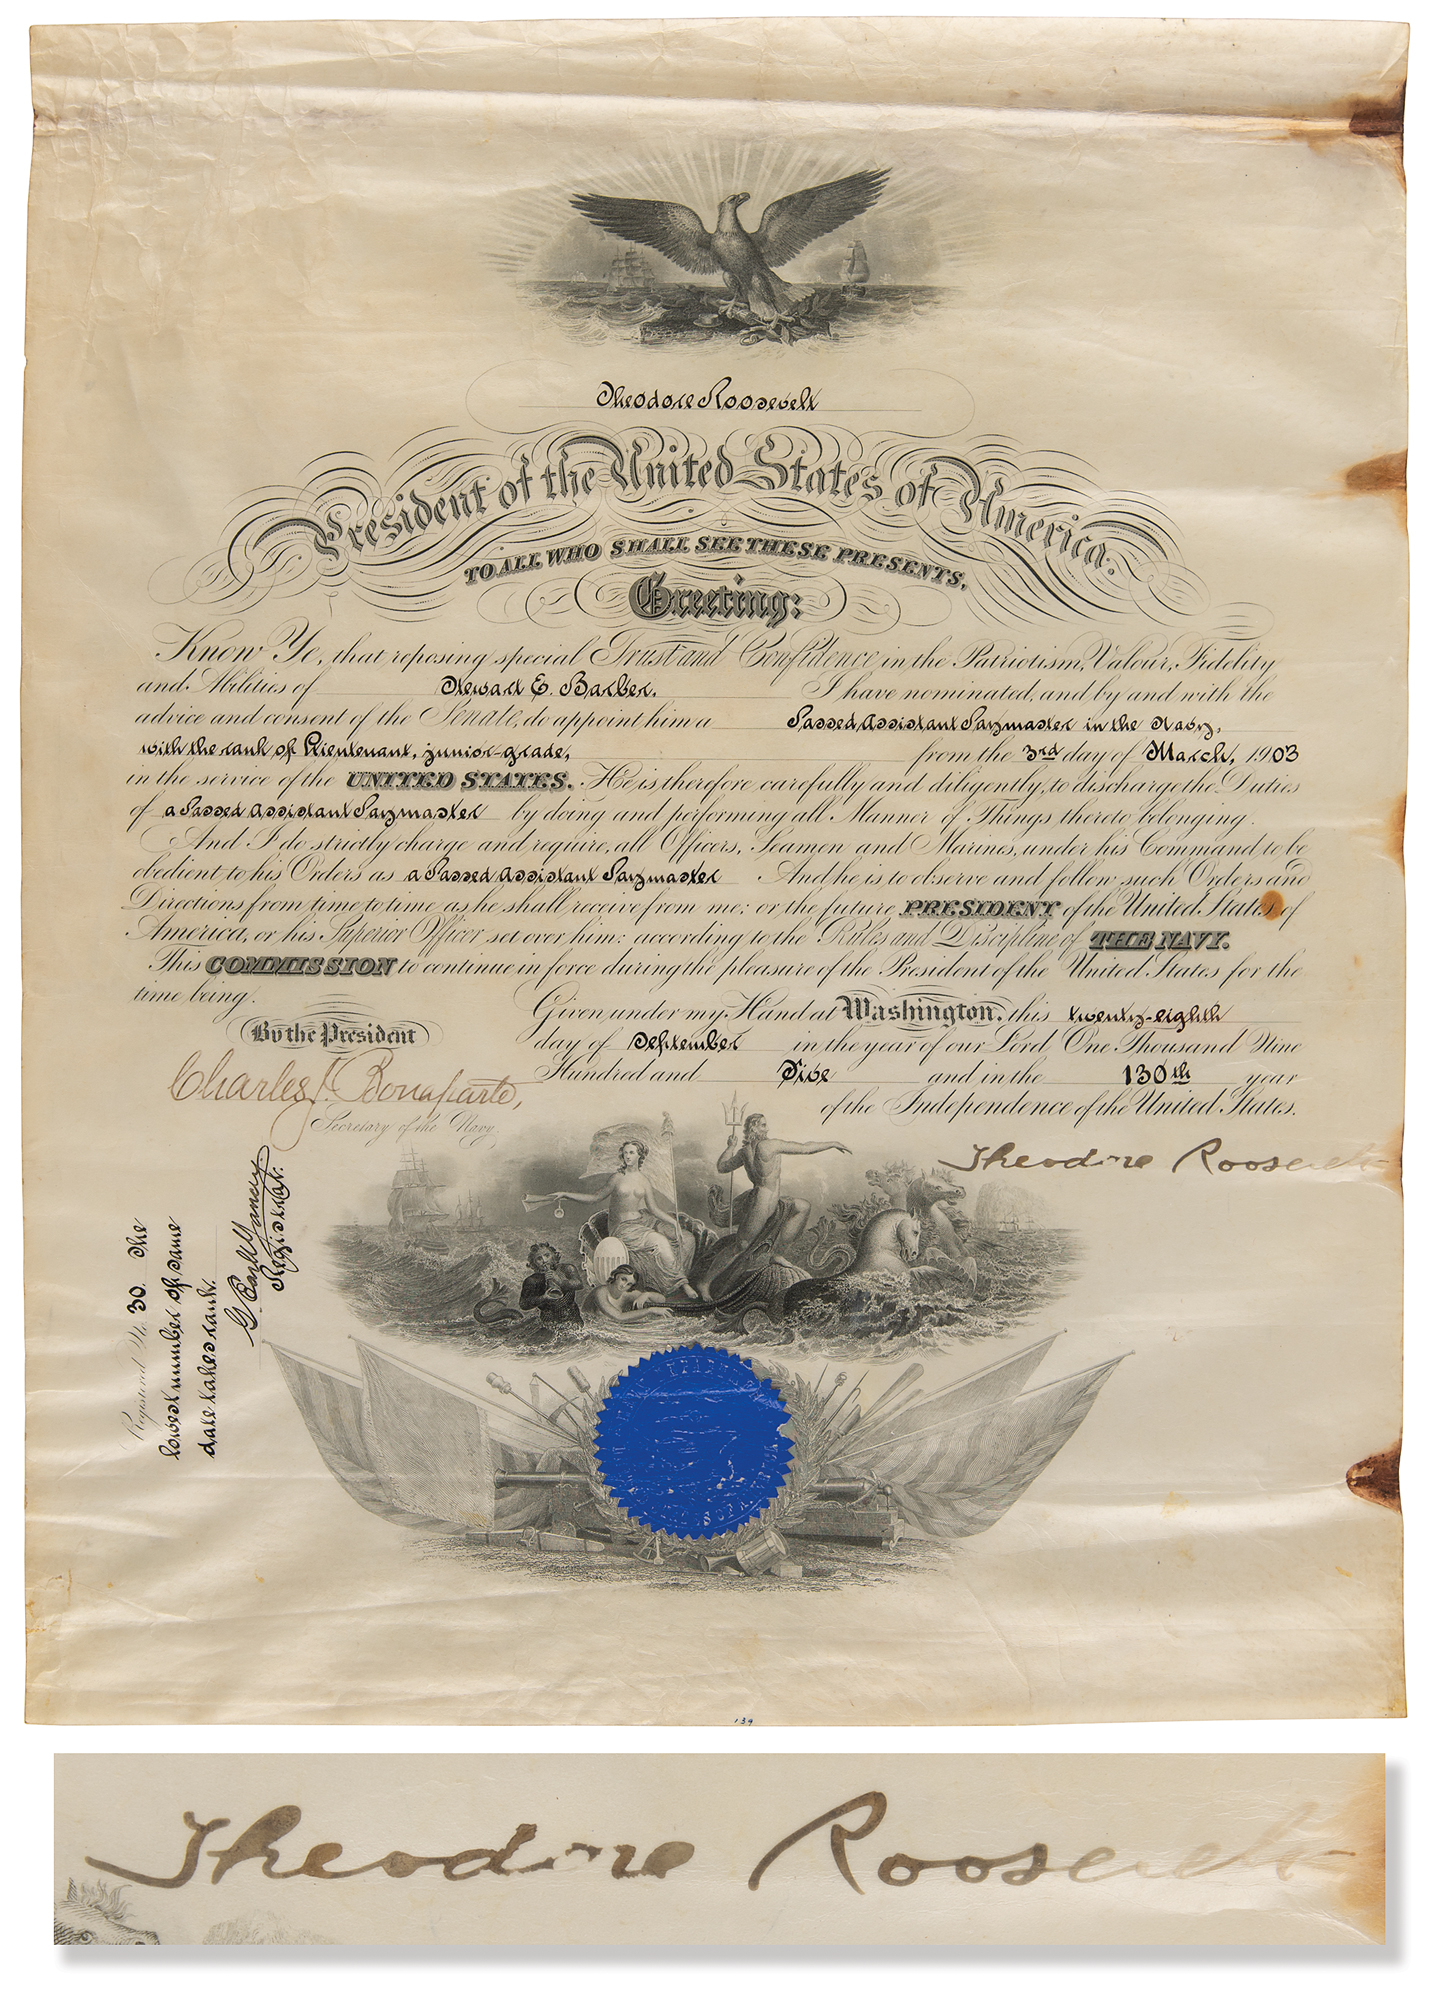 Theodore Roosevelt
President of the United States of America.
TO ALL WHO SHALL SEE THESE PRESENTS,
Greeting:
Know Ye, that reposing special Trust and Confidence in the Patriotism, Valour, Fidelity
and Abilities of Stewart E. Barber. I have nominated, and by and with the
advice and consent of the Senate, do appoint him a Passed Assistant Paymaster in the Navy,
with the rank of Lieutenant, junior-grade, from the 3rd day of March, 1903
in the service of the UNITED STATES. He is, therefore carefully and diligently, to discharge the Duties
of a Passed Assistant Paymaster by doing and performing all Manner of Things thereto belonging.
And I do strictly charge and require, all Officers, Seamen and Marines, under his Command to be
obedient to his Orders as a Passed Assistant Paymaster And he is to observe and follow such Orders and
Directions from time to time as he shall receive from me: or, the future PRESIDENT of the United States of
America, or his Superior Officer set over him: according to the Rules and Discipline of THE NAVY.
This COMMISSION to continue in force during the pleasure of the President of the United States for the
time being.
Given under my Hand at Washington, this twenty-eighth
By the President
day of September in the year of our Lord One Thousand Nine
Hundred and Five and in the 130th year
Charles J. Bonaparte,
of the Independence of the United States.
Secretary of the Navy.
Theodore Roosevelt
Registered No. 30. The
lowest number of same
date takes rank.
Registrar.
139
Theodore Roosevelt